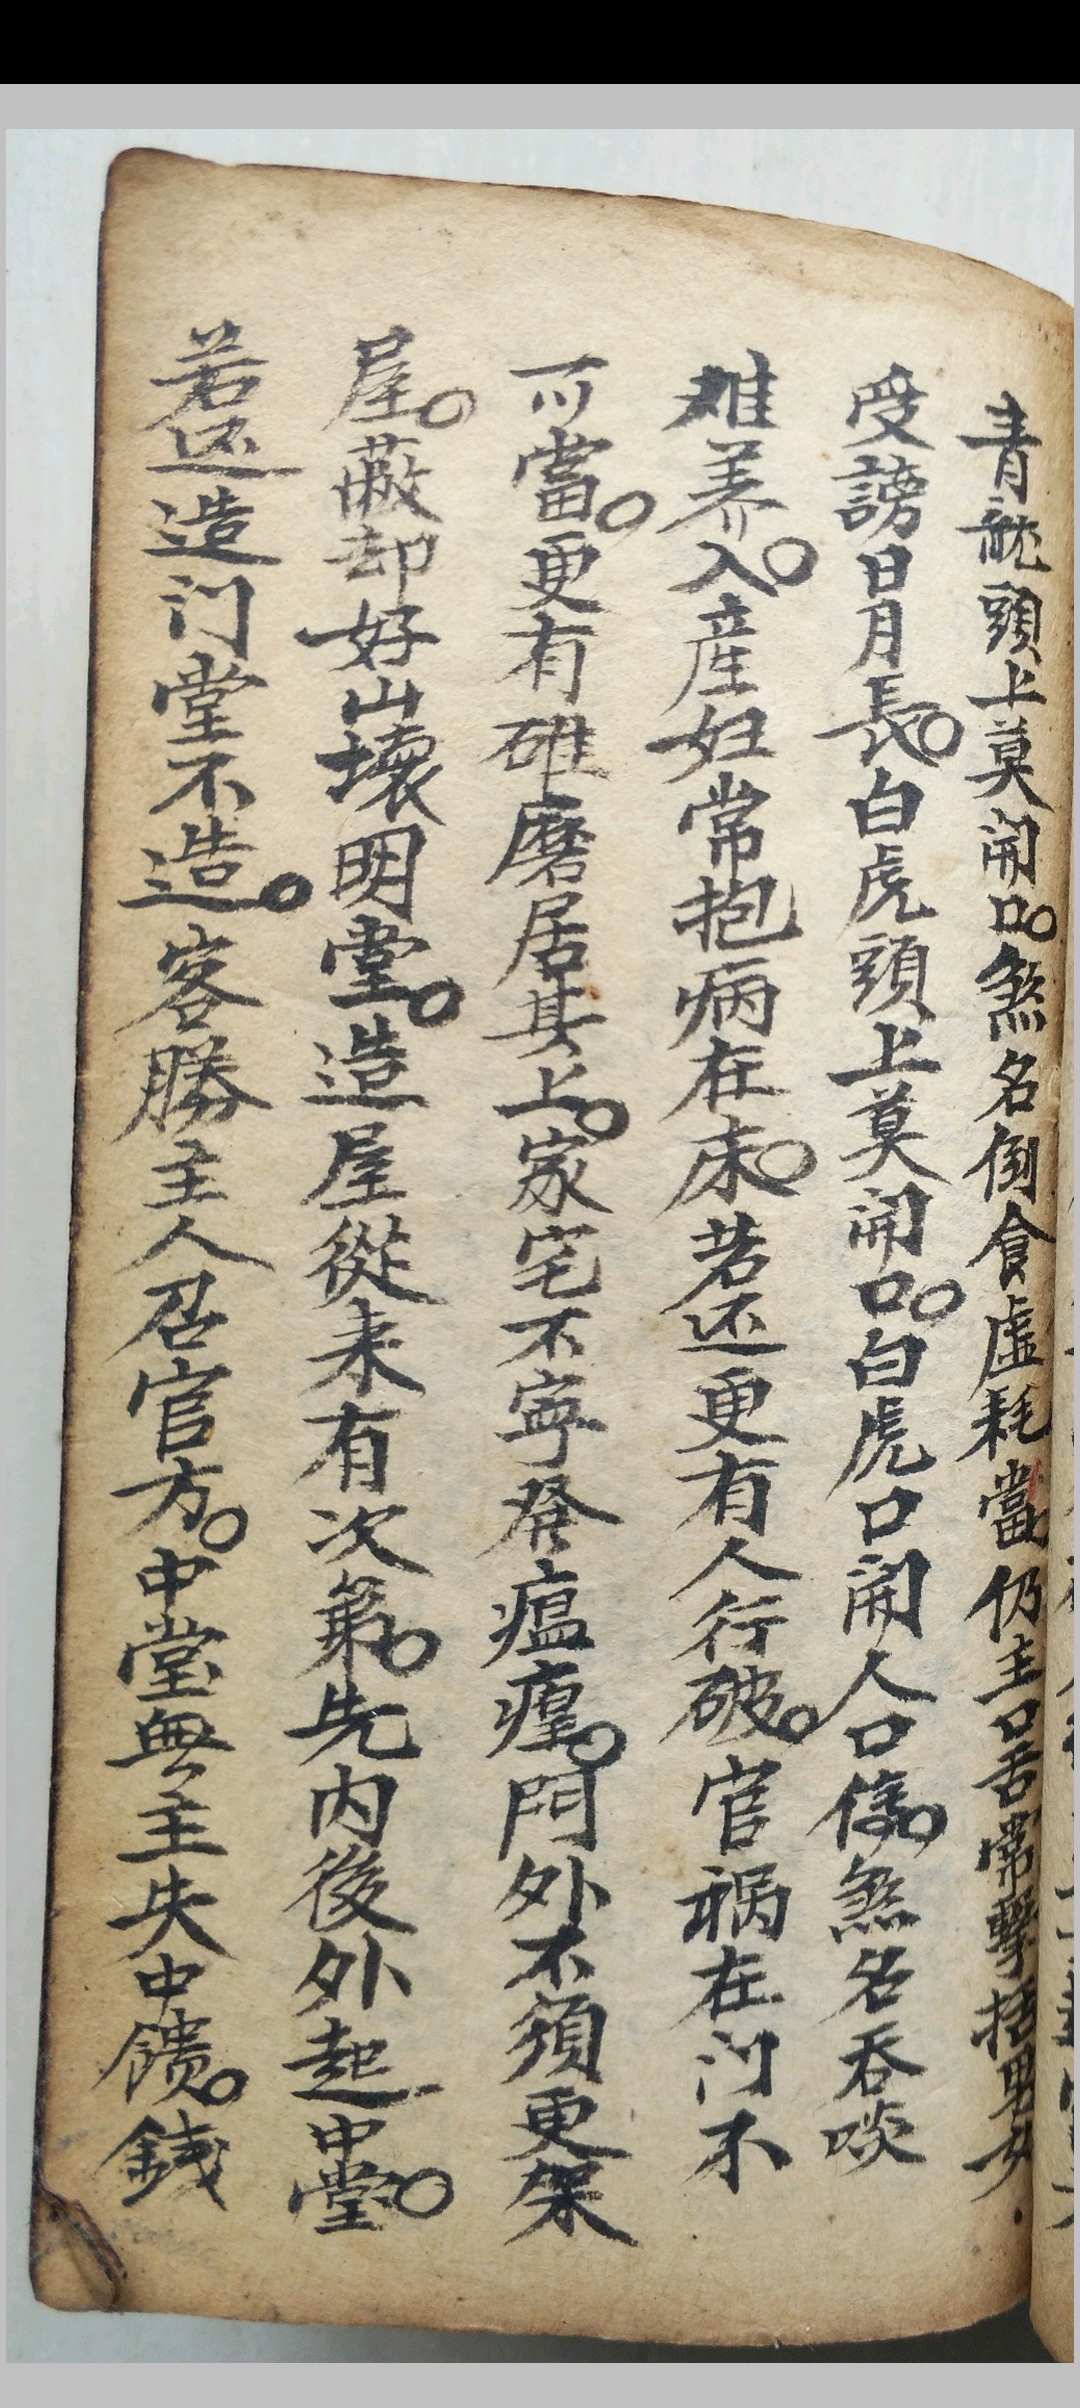 青龍頭上莫開口。煞名倒食虛耗當。仍主口舌常擊括男女
受謗日月長。白虎頭上莫開口。白虎口開人口傷。煞名吞啖
难养人。産妇常抱病在床。若还更有人行破。官祸在门不
可當。更有碓磨居其上。家宅不寧發瘟瘟。門外不須更架
屋。蔽却好山壞明堂。造屋從来有次第。先内後外起中堂。
若还造门堂不造。客勝主人召官方。中堂無主失中饋。錢